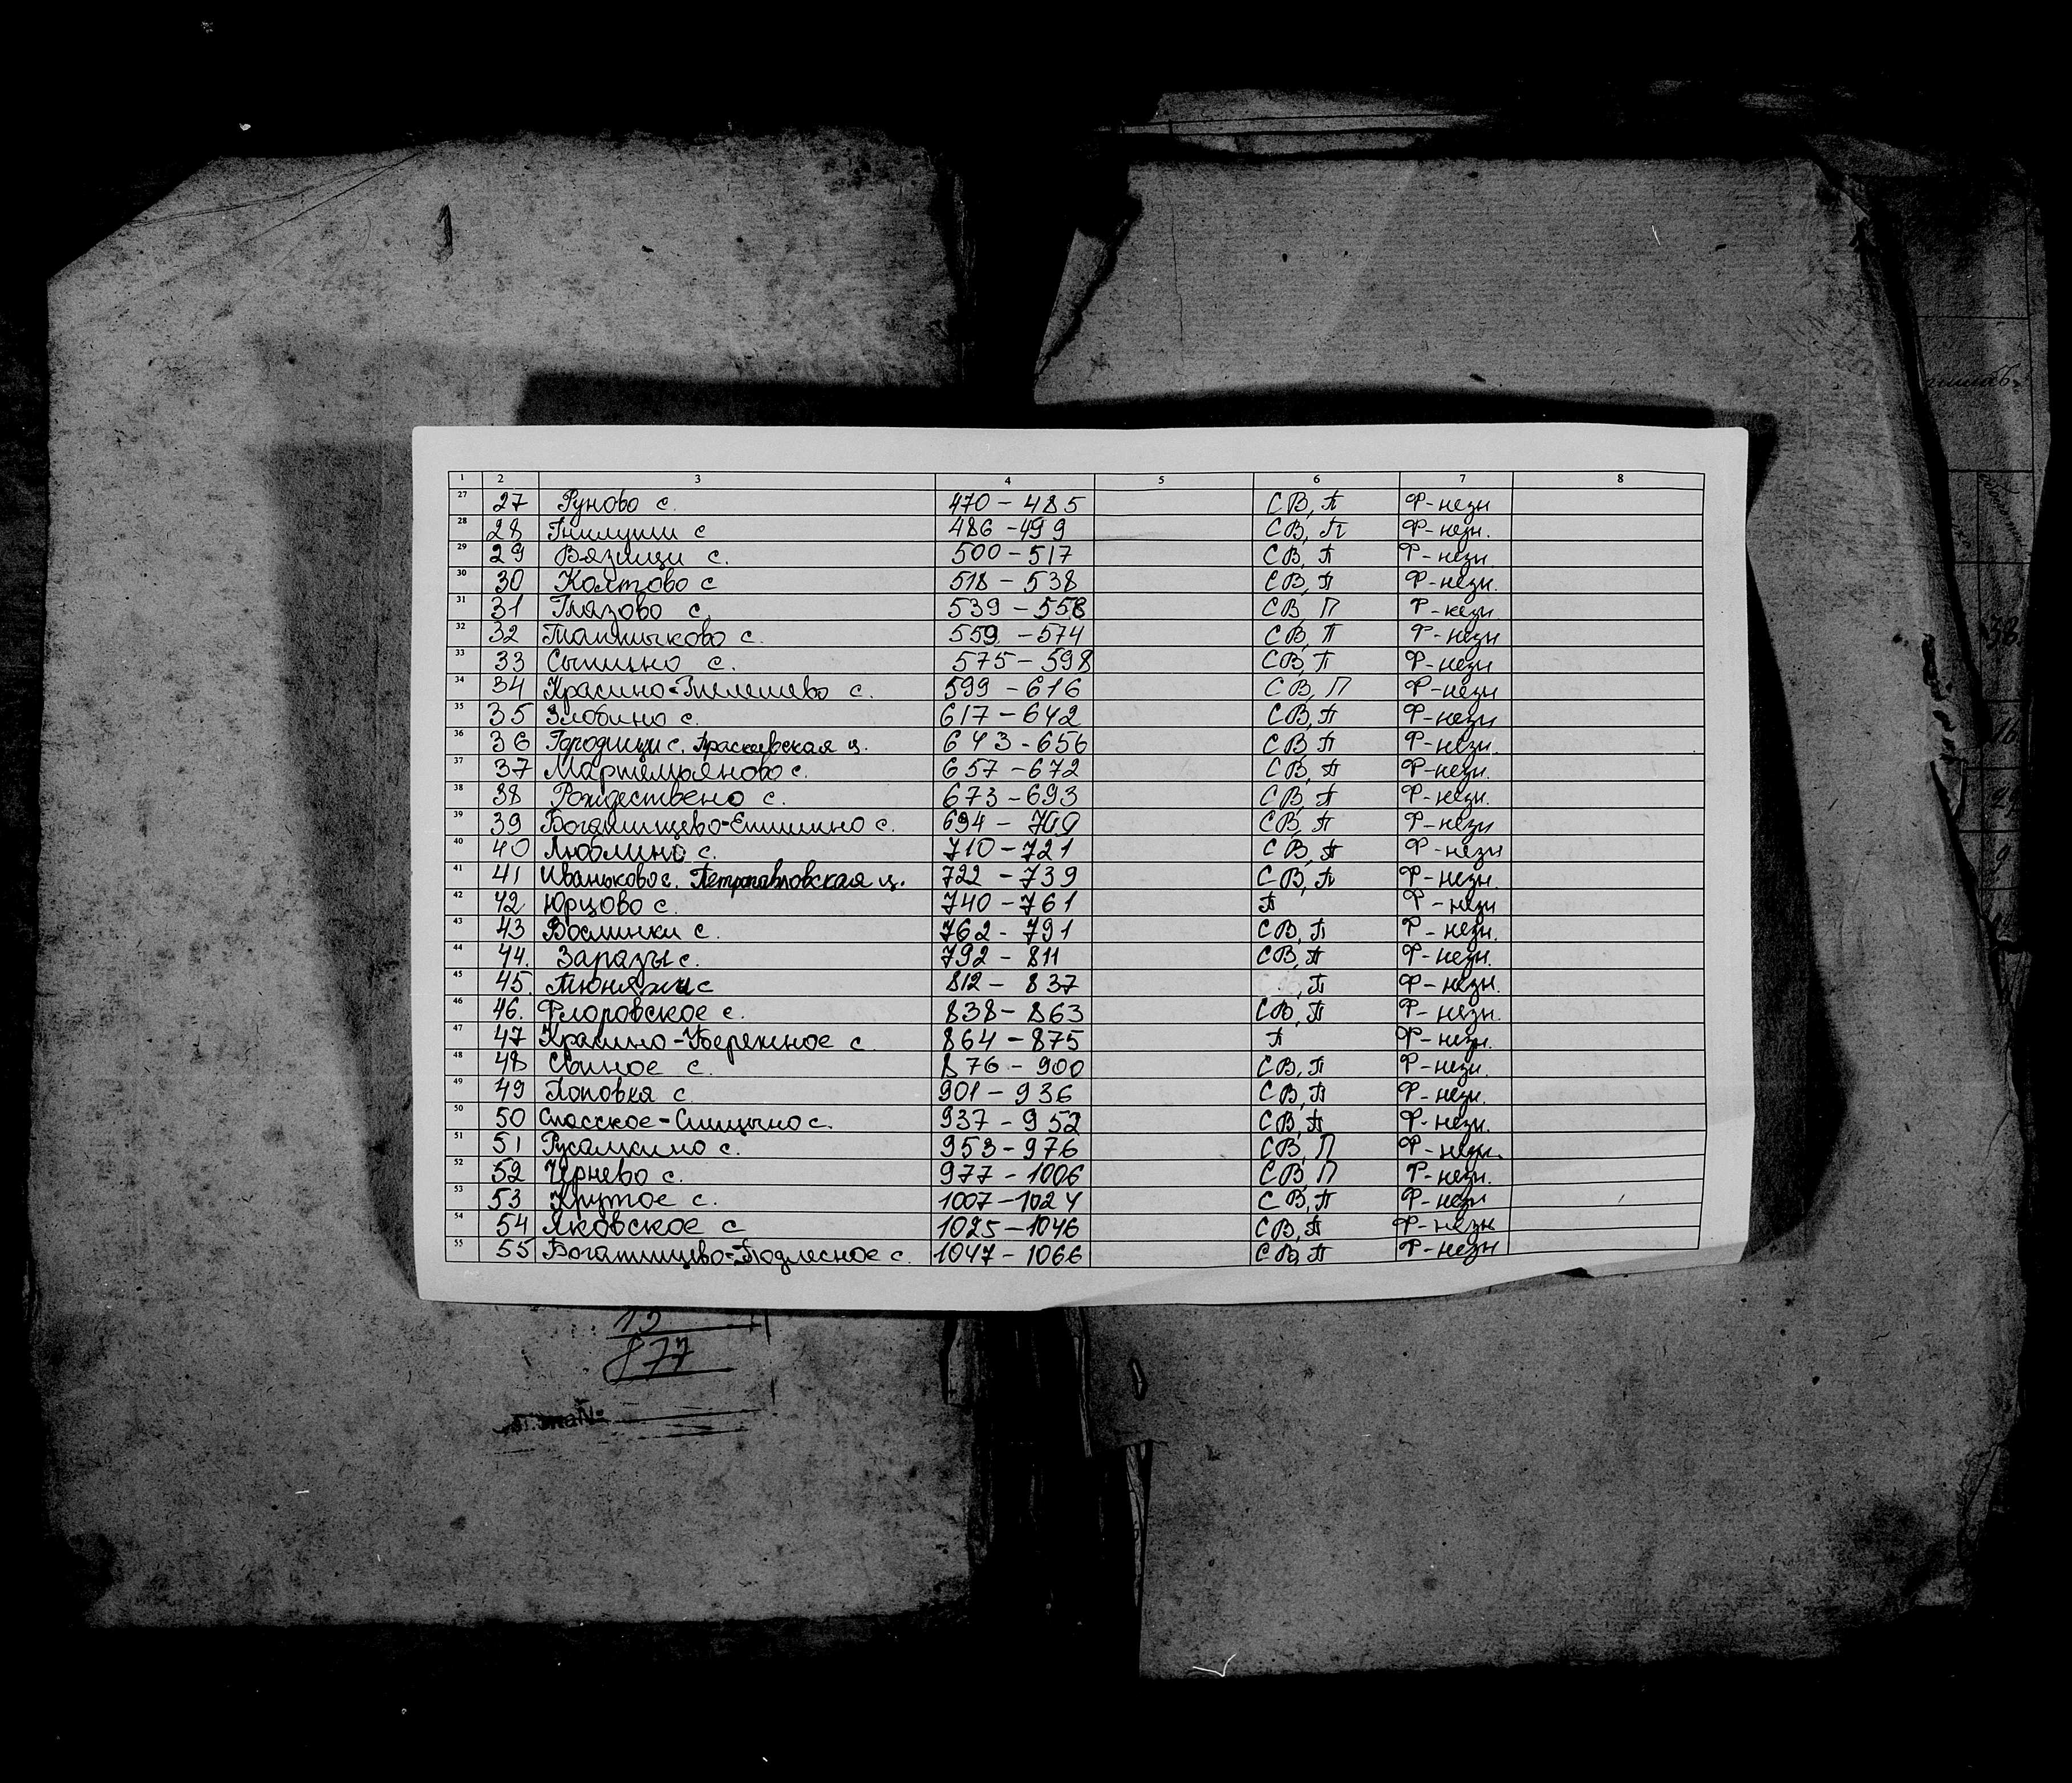 1 2 3 4 5 6 7 8
27 27 Руново с. 470 - 485 СВ, П Ф-незн
28 28 Гнилуши с 486 - 499 СВ, П Ф-незн.
29 29 Вязищи с. 500 - 517 СВ, П Ф-незн
30 30 Колтово с 518 - 538 СВ, П Ф-незн.
31 31 Глазово с. 539 - 558 СВ П Ф-незн
32 32 с. 559 - 574 СВ, П Ф-незн
33 33 Сынино с. 575 - 598 СВ, П Ф-незн
34 34 Красино- с. 599 - 616 СВ, П Ф-незн
35 35 Злобино с. 617 - 642 СВ, П Ф-незн
36 36 Городищи с. Праскевская ц. 643 - 656 СВ, П Ф-незн.
37 37 Мартемьяново с. 657 - 672 СВ, П Ф-незн.
38 38 Рождествено с. 673 - 693 СВ, П Ф-незн.
39 39 Богатищево-Епишино с. 694 - 709 СВ, П Ф-незн
40 40 Люблино с. 710 - 721 СВ, П Ф-незн
41 41 Иваньково с. Петропавловская ц. 722 - 739 СВ, П Ф-незн.
42 42 Юрцово с. 740 - 761 П Ф-незн
43 43 Вослинки с. 762 - 791 СВ, П Ф-незн.
44 44. Заразы с. 792 - 811 СВ, П Ф-незн.
45 45. Тюняжи с 812 - 837 , П Ф-незн.
46 46. Флоровское с. 838 - 863 СВ, П Ф-незн.
47 47 Красино-Убережное с. 864 - 875 П Ф-незн.
48 48 Свиное с. 876 - 900 СВ, П Ф-незн.
49 49 Поповка с. 901 - 936 СВ, П Ф-незн.
50 50 Спасское-Сницыно с. 937 - 952 СВ, П Ф-незн.
51 51 Русалкино с. 953 - 976 СВ, П Ф-незн.
52 52 Чернево с. 977 - 1006 СВ, П Ф-незн.
53 53 Крутое с. 1007 - 1024 СВ, П Ф-незн
54 54 Яковское с 1025 - 1046 СВ, П Ф-незн
55 55 Богатищево-Подлесное с. 1047 - 1066 СВ, П Ф-незн
877